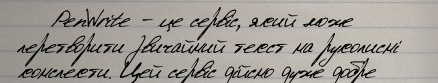 PenWrite – це сервіс, який може
перетворити звичайний текст на рукописні
конспекти. Цей сервіс дійсно дуже добре